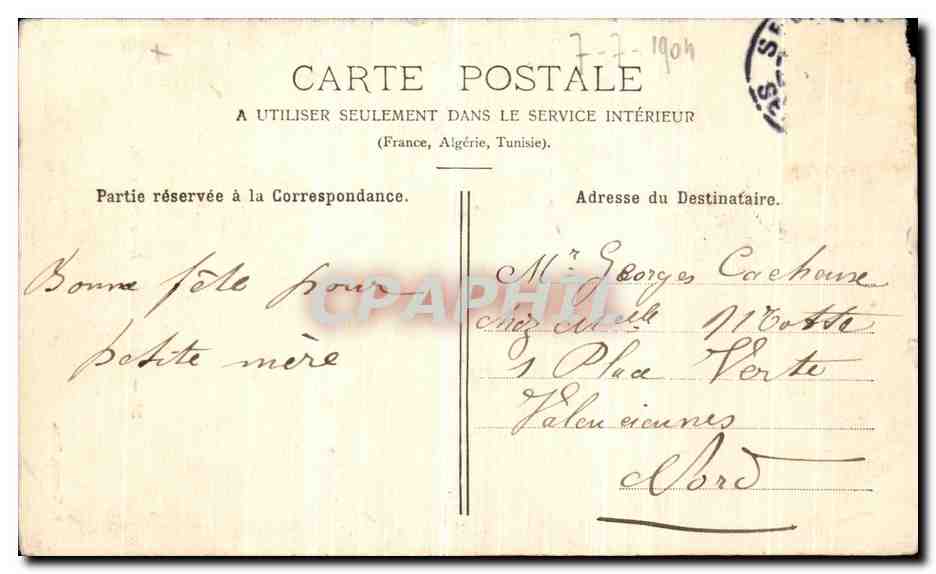 7-7-1904
CARTE POSTALE
A UTILISER SEULEMENT DANS LE SERVICE INTÉRIEUR
(France, Algérie, Tunisie).
Partie réservée à la Correspondance.
Bonne fête pour
petite mère
Adresse du Destinataire.
Mr Georges
chez Melle
1 Place Verte
Valenciennes
Nord
CPAPHIL